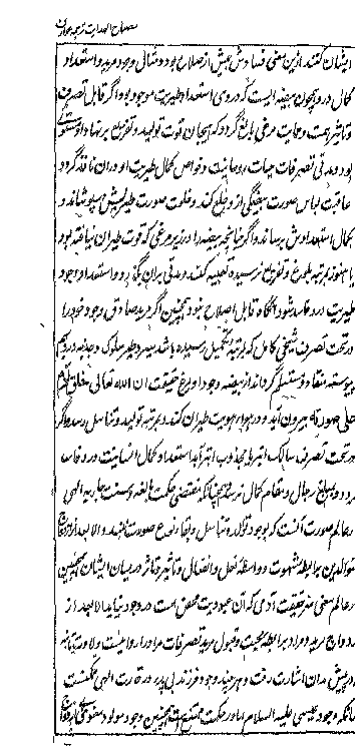 مصباح الهدایت ترجمه عوارف
ایشان کنند ازین معنی فساد ش بیش از صلاح بود و مثال وجود مرید و استعداد
کمال در و همچون بیضه ایست که در وی استعداد طیریت موجود بود اگر قابل تصرف
و تاثیر همت و حمایت مرغی بالغ گردد که هیجان قوت تولید و تفریخ بر نهاد او مستولی
بود و مدتی تصرفات حیات روحانیت و خواص کمال طیریت او در ان نافذ گردد
عاقبت لباس صورت بیضگی از و خلع کند و خلعت صورت طیریش بپوشاند و
بکمال استعدادش برساند و اگر چنانچه بیضه را در زیر مرغی که قوت طیران نیافته بود
یا هنوز بمرتبه بلوغ و تفریخ نرسیده تعبیه کنند و مدتی بران بگذرد و استعداد وجود
طیریت در و فاسد شود آنگاه قابل اصلاح نبود همچنین اگر مرید صادق وجود خود را
در تحت تصرف شیخی کامل که بمرتبه تکمیل رسیده باشد سیر و طیر سلوک و جذبه در و بهم
پیوسته منقاد و مستسلم گرداند از بیضه وجود او مرغ حقیقت ان الله تعالی خلق آدم
علی صورته بیرون آید و در هوای هویت طیران کند و بمرتبه تولید و تناسل رسد و اگر
در تحت تصرف سالک ابتر یا مجذوب ابتر آید استعداد کمال انسانیت در و فاسد
گردد و ببلوغ رجال و مقام کمال نرسد و همچنانکه مقتضی حکمت بالغه و سنت جاریه الهی
در عالم صورت آنست که وجود توالد و تناسل و بقای نوع صورت نبندد الا بعد از ازدواج
متوالدین برابطه شهوت و واسطه فعل و انفعال و تاثیر و تاثر در میان ایشان همچنین
در عالم معنی حقیقت آدمی که آن عبودیت محض است در وجود نیاید الا بعد از
ازدواج مرید و مراد برابطه محبت و قبول مرید تصرفات مراد را و اینست ولادت ثانیه
که در پیش بدان اشارت رفت و هر چند وجود فرزند بی پدر در قدرت الهی ممکنست
مانند وجود عیسی علیه السلام اما در حکمت ممتنع است همچنین وجود مولود معنوی بی ازدواج